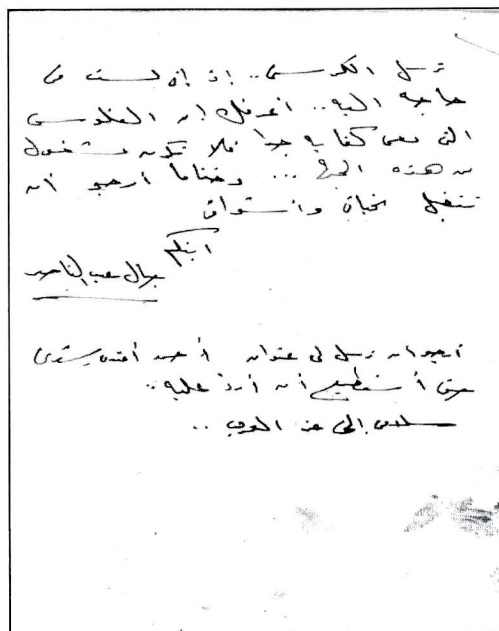 ترسل الكرسى.. إذ إنى لست فى
حاجة إليه.. أعرفك أن الفلوس
التى معى كفاية جداً فلا تكون مشغول
من هذه الجهة ... وختاماً أرجو أن
تتقبل تحياتى وأشواقى
ابنكم
جمال عبد الناصر
أرجو أن ترسل لى عنوان أحمد أفندى
حتى أستطيع أن أرد عليه..
سلامى إلى عز العرب ..